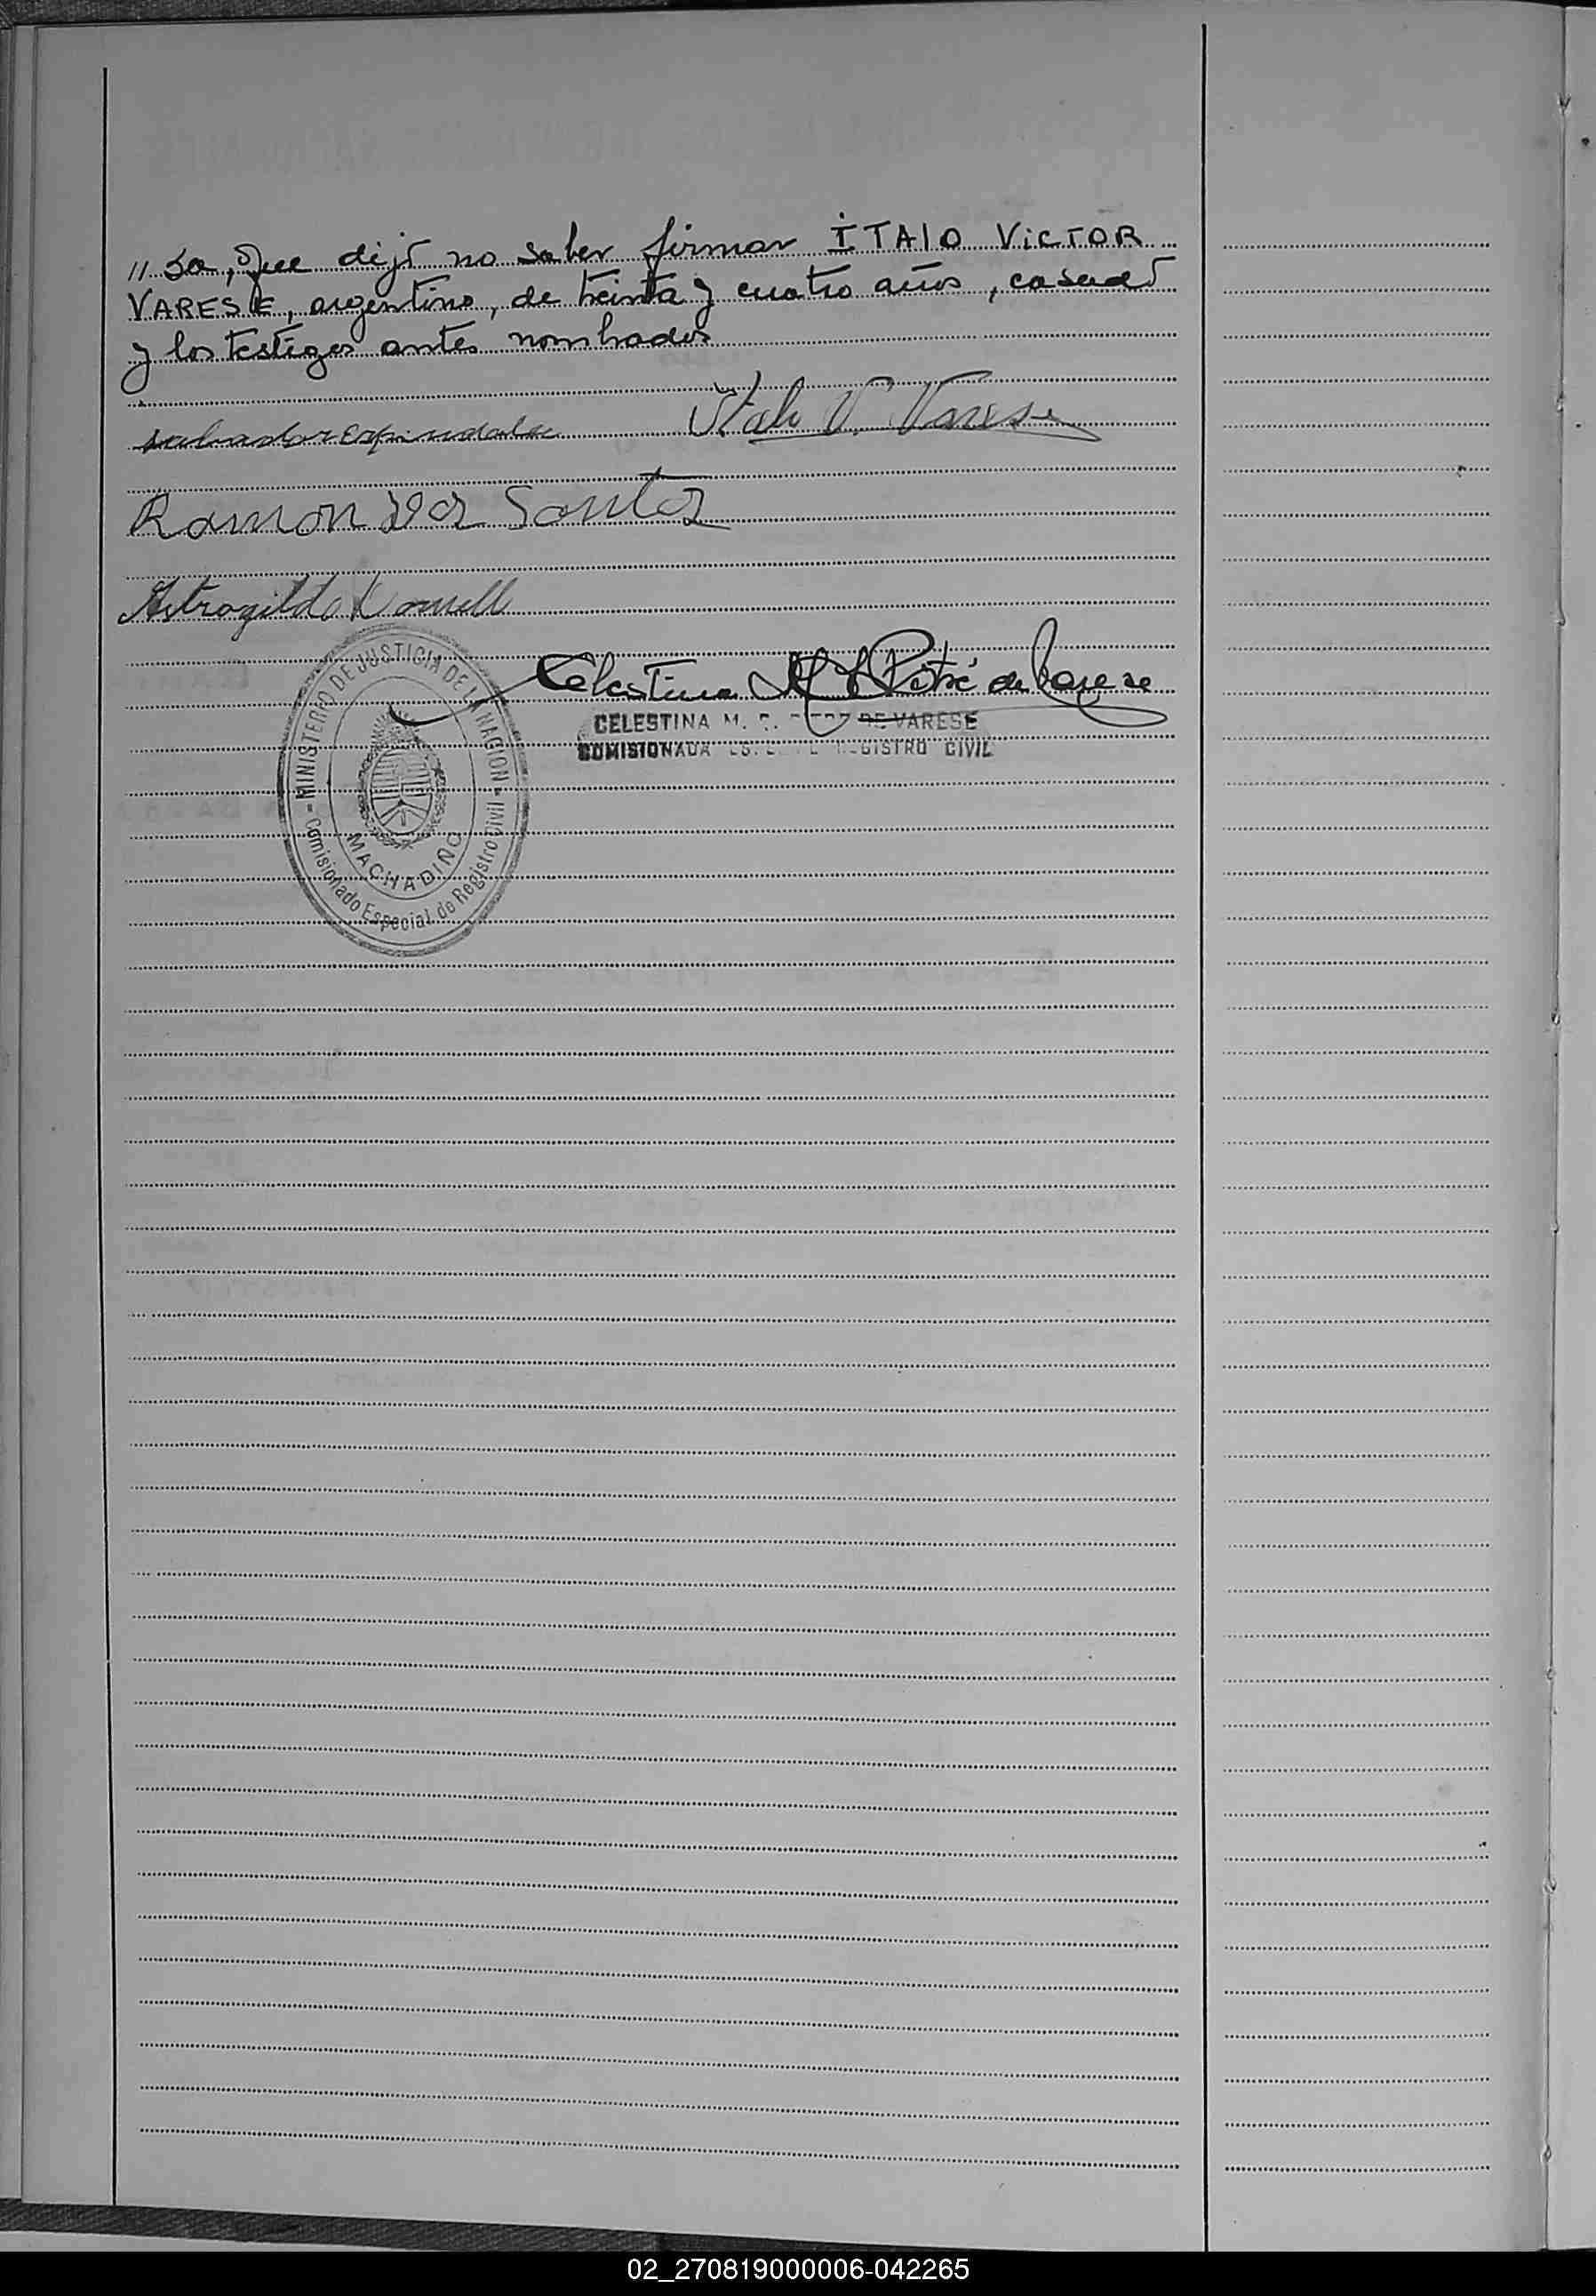 // sa, que dijó no saber firmar ITALO VICTOR
VARESE, argentino, de treinta y cuatro años, casado
y los testigos antes nombrados
Salvador Espindola
Italo V. Varese
Ramon Dos Santos
Astrogildo
Celestina M. de Varese
CELESTINA M. DE VARESE
COMISIONADA REGISTRO CIVIL
- MINISTERIO DE JUSTICIA DE LA NACION -
MACHADIÑO
Comisionado Especial de Registro Civil
02_270819000006-042265